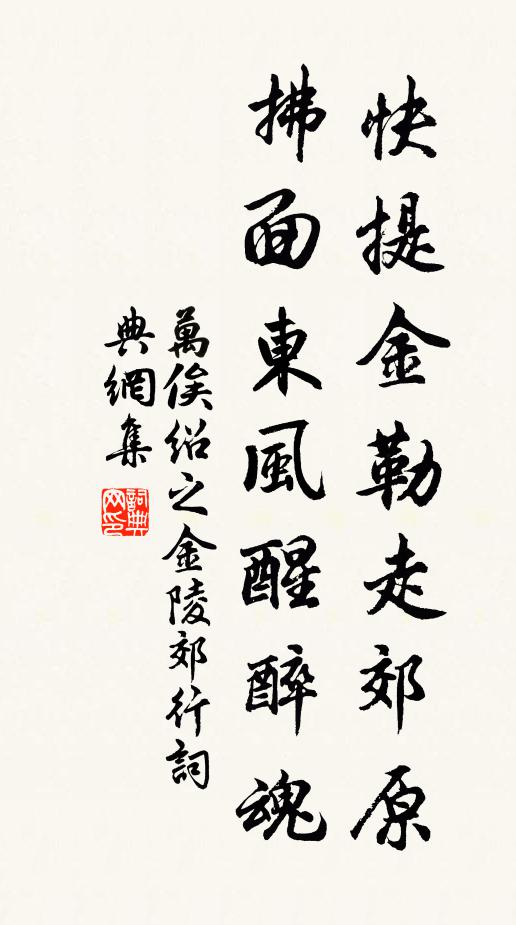 快提金勒走郊原
拂面東風醒醉魂
萬俟绍之金陵郊行詞
典網集
詞典网印